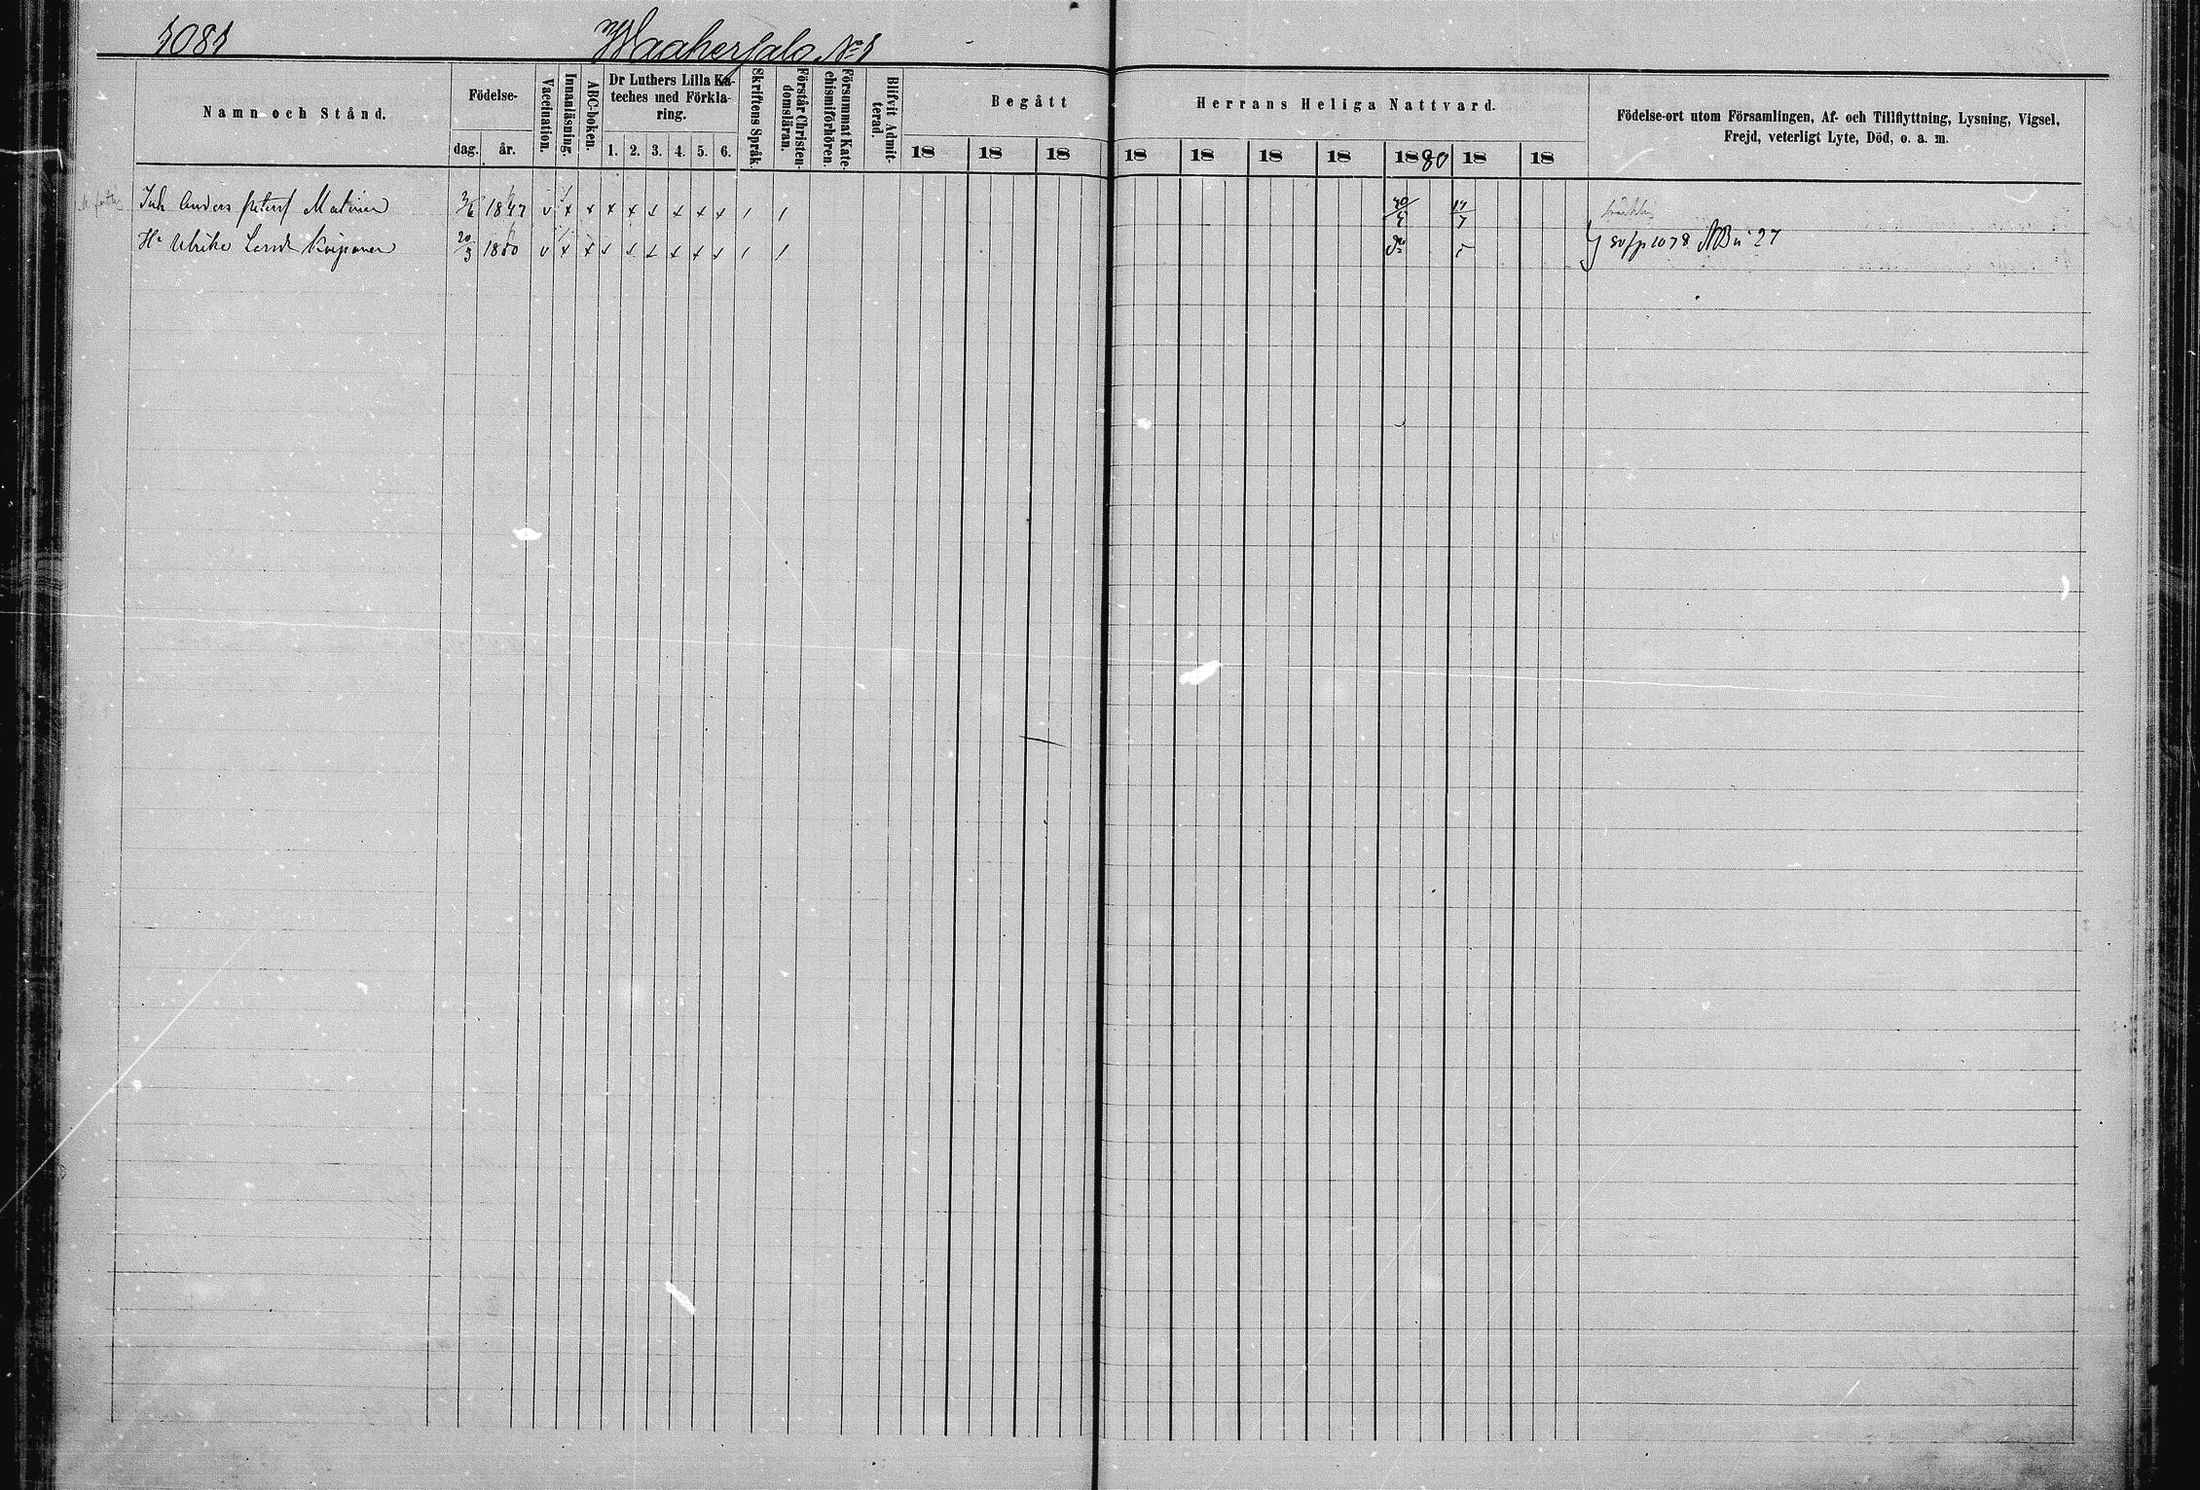 1081
Waahersalo No 1
Namn och Stånd.
Födelse-
dag. år.
Vaccination.
Innanläsning.
ABC-boken.
Dr Luthers Lilla Ka-
teches med Förkla-
ring.
1. 2. 3. 4. 5. 6.
Skriftens Språk.
Förstår Christen-
domsläran.
Försummat Kate-
chismiförhören.
Blifvit Admit-
terad.
Begått
18 18 18
Herrans Heliga Nattvard.
18 18 18 18 1880 18 18
Födelse-ort utom Församlingen, Af- och Tillflyttning, Lysning, Vigsel,
Frejd, veterligt Lyte, Död, o. a. m.
Inh Anders Matinen 1847
Hu Ulrika 20/3 18
1078 27